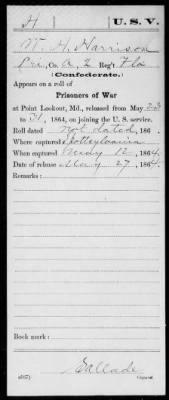 H U.S.V.
W. H. Harrison
Pri., Co. A, 2 Reg't Fla
(Confederate.)
Appears on a roll of
Prisoners of War
at Point Lookout, Md., released from May 23
to 31, 1864, on joining the U. S. service.
Roll dated not dated, 186 .
Where captured Spottsylvania
When captured May 12, 1864.
Date of release May 27, 1864.
Remarks:
Book mark:
Copyist.